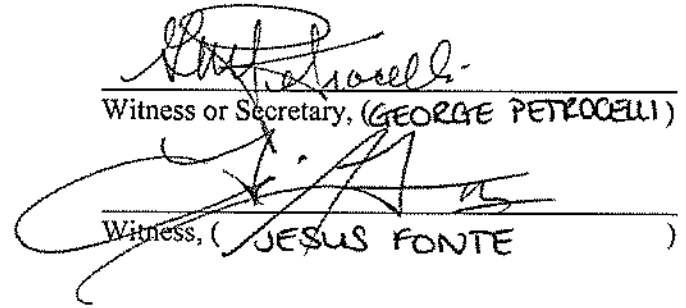 Petrocelli
Witness or Secretary, (GEORGE PETROCELLI)
Witness, ( JESUS FONTE )